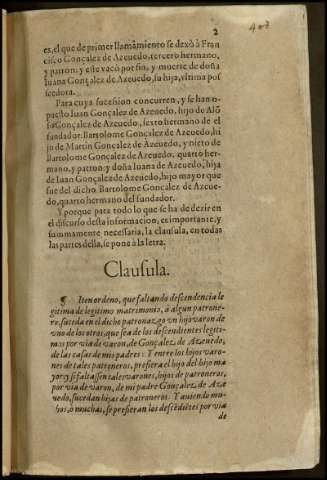 2
es, el que de primer llamamiento se dexò à Fran
cisco Gonçalez de Azeuedo, tercero hermano,
y patron: y este vacò por fin, y muerte de doña
Iuana Gonçalez de Azeuedo, su hija, vltima pos
seedora.
Para cuya sucession concurren, y se han o-
puesto Iuan Gonçalez de Azeuedo, hijo de Alõ
so Gonçalez de Azeuedo, sexto hermano de el
fundador. Bartolome Gonçalez de Azeuedo, hi
jo de Martin Goncalez de Azeuedo, y nieto de
Bartolome Gonçalez de Azeuedo, quarto her-
mano, y patron: y doña Iuana de Azeuedo, hija
de Iuan Gonçalez de Azeuedo, hijo mayor que
fue del dicho Bartolome Goncalez de Azeue-
do, quarto hermano del fundador.
Y porque para todo lo que se ha de dezir en
el discurso desta informacion, es importante, y
summamente necessaria, la clausula, en todas
las partes della, se pone à la letra.
Clausula.
¶ Iten ordeno, que faltando descendencia le
gitima de legitimo matrimonio, à algun patrone-
ro, suceda en el dicho patronazgo vn hijo varon de
vno de los otros, que sea de los descendientes legiti-
mos por via de varon, de Gonçalez, de Azeuedo,
de las casas de mis padres: Y entre los hijos varo-
nes de tales patroneros, prefiera el hijo del hijo ma
yor: y si faltassen tales varones, hijos de patroneros,
por via de varon, de mi padre Gonçalez, de Aze
uedo, sucedan hijas de patroneros. Y auiendo mu-
chos, ò muchas, se prefieran los descẽdiẽtes por via
de